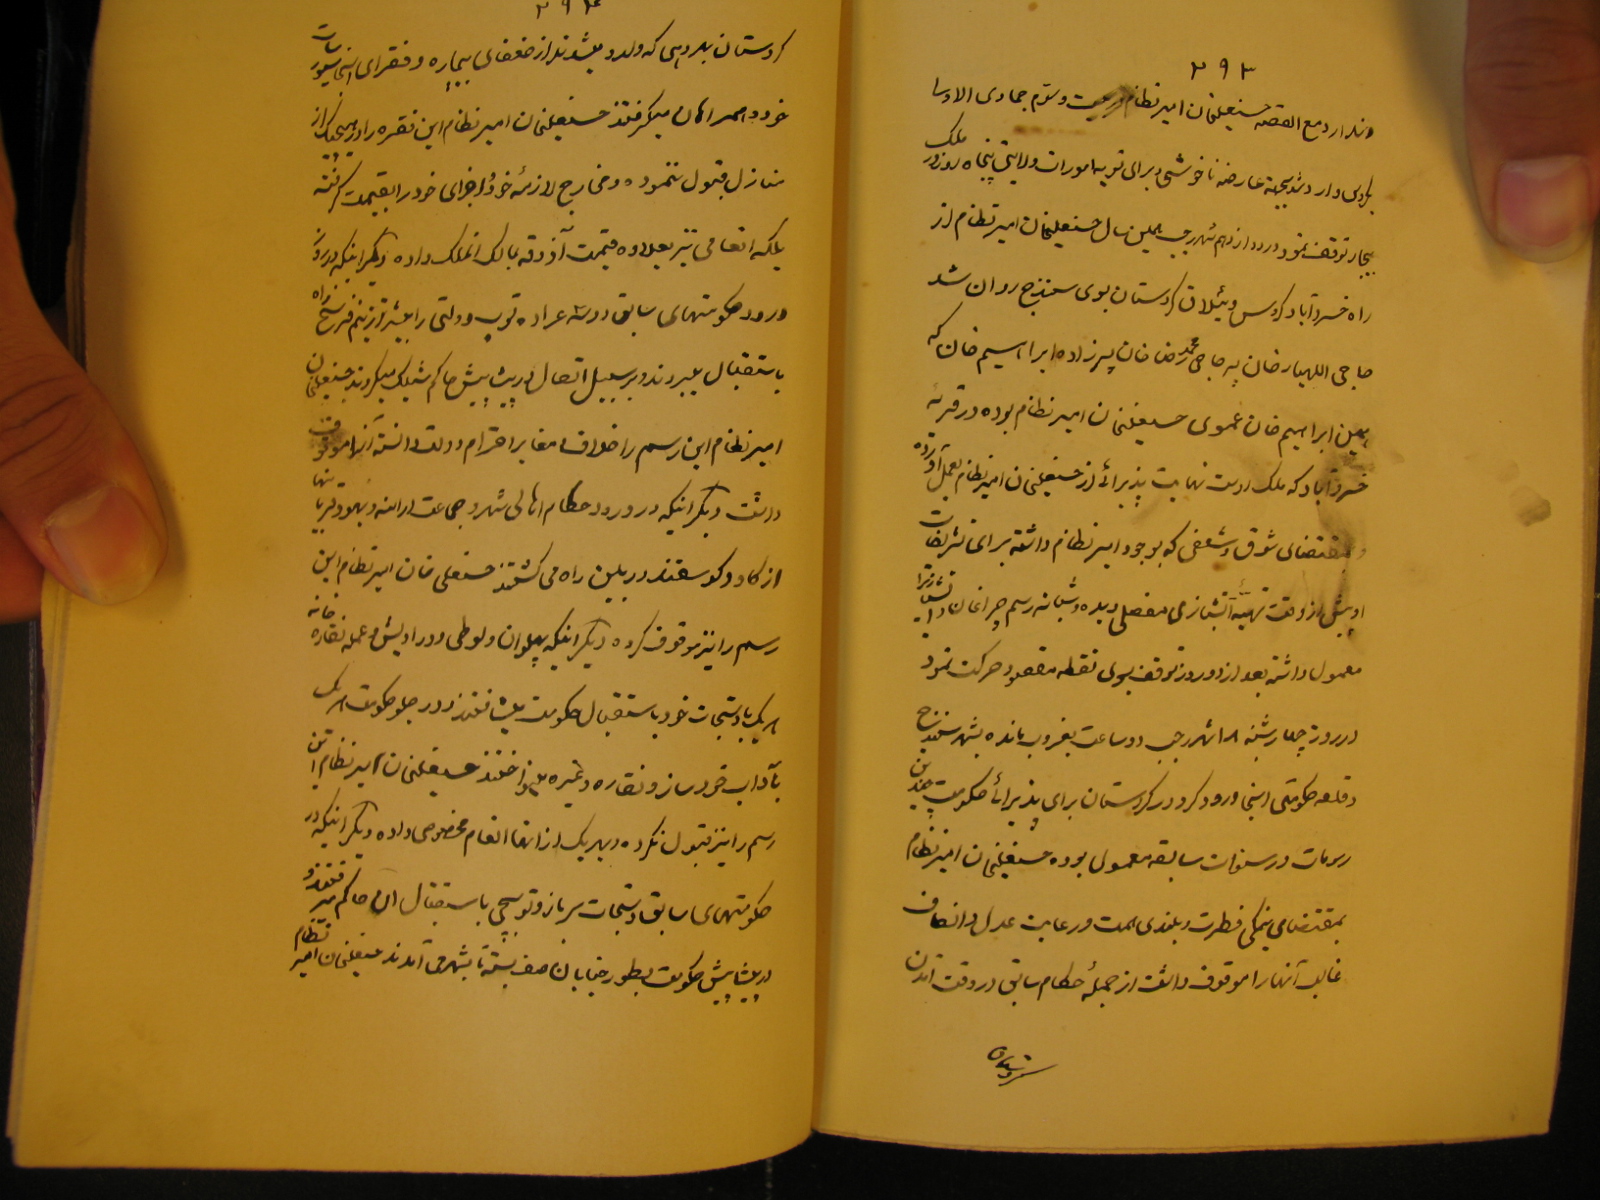 ۲۹۳
ندارد مع القصه حسنعلیخان امیر نظام در بیست و سوم جمادی الاولی
وارد شد بجهة عارضه ناخوشی و برای تسویه امورات ولایتی پنجاه روز در ملک
بیجار توقف نمود در دوازدهم شهر رجب همین سال حسنعلیخان امیر نظام از
راه خسروآباد کروس و ییلاق کردستان بسوی سنندج روان شد
حاجی اللهیار خان پسر حاجی محمد رضا خان پسرزاده ابراهیم خان که
همین ابراهیم خان عموی حسنعلیخان امیر نظام بوده در قریه
خسروآباد که ملک اوست نهایت پذیرائی از حسنعلیخان امیر نظام بعمل آورده
و بمقتضای شوق و شعفی که بوجود امیر نظام داشته برای تشریفات
او پیش از وقت تهیه آتشبازی مفصلی دیده و شبانه رسم چراغان و آتشبازی را
معمول داشته بعد از دو روز توقف بسوی نقطه مقصود حرکت نمود
در روز چهارشنبه ۱۸ شهر رجب دو ساعت بغروب مانده بشهر سنندج
و قلعه حکومتی اینجا ورود کرد در کردستان برای پذیرائی حکومت چندین
رسومات در سنوات سابقه معمول بوده حسنعلیخان امیر نظام
بمقتضای نیکی فطرت و بلندی همت و رعایت عدل و انصاف
غالب آنها را موقوف داشت از جمله حکام سابق در وقت آمدن
کردستان
۲۹۴
کردستان بهر دهی که وارد میشدند از ضعفای بیچاره و فقرای آنجا سیورسات
خود و همراهان میگرفتند حسنعلیخان امیر نظام این فقره را در هیچیک از
منازل قبول ننموده و مخارج لازمه خود و اجزای خود را بقیمت گرفته
بلکه انعامی نیز بعلاوه قیمت آذوقه بمالک آنملک داده دیگر اینکه در روز
ورود حکومتهای سابق دو سه عراده توپ دولتی را بیشتر از نیم فرسخ راه
باستقبال میبردند و بر سبیل اتصال در پیشاپیش حاکم شلیک میکردند حسنعلیخان
امیر نظام این رسم را خلاف و مغایر احترام دولت دانسته آنرا موقوف
داشت دیگر اینکه در ورود حکام اهالی شهر و جماعت ارامنه و یهود قربانیها
از گاو و گوسفند در بین راه می کشتند حسنعلی خان امیر نظام این
رسم را نیز موقوف کرده دیگر اینکه پهلوان و لوطی و دراویش و عمله نقاره خانه
هر یک با دستجات خود باستقبال حکومت میشتافتند و در جلو حکومت هر یک
بآداب خود ساز و نقاره و غیره مینواختند حسنعلیخان امیر نظام این
رسم را نیز قبول نکرده و بهر یک از آنها انعام مخصوصی داده دیگر اینکه در
حکومتهای سابق دستجات سرباز و توپچی باستقبال آن حاکم میرفتند و
در پیشاپیش حکومت بطور خیابان صف بسته تا بشهر می آمدند حسنعلیخان امیر نظام